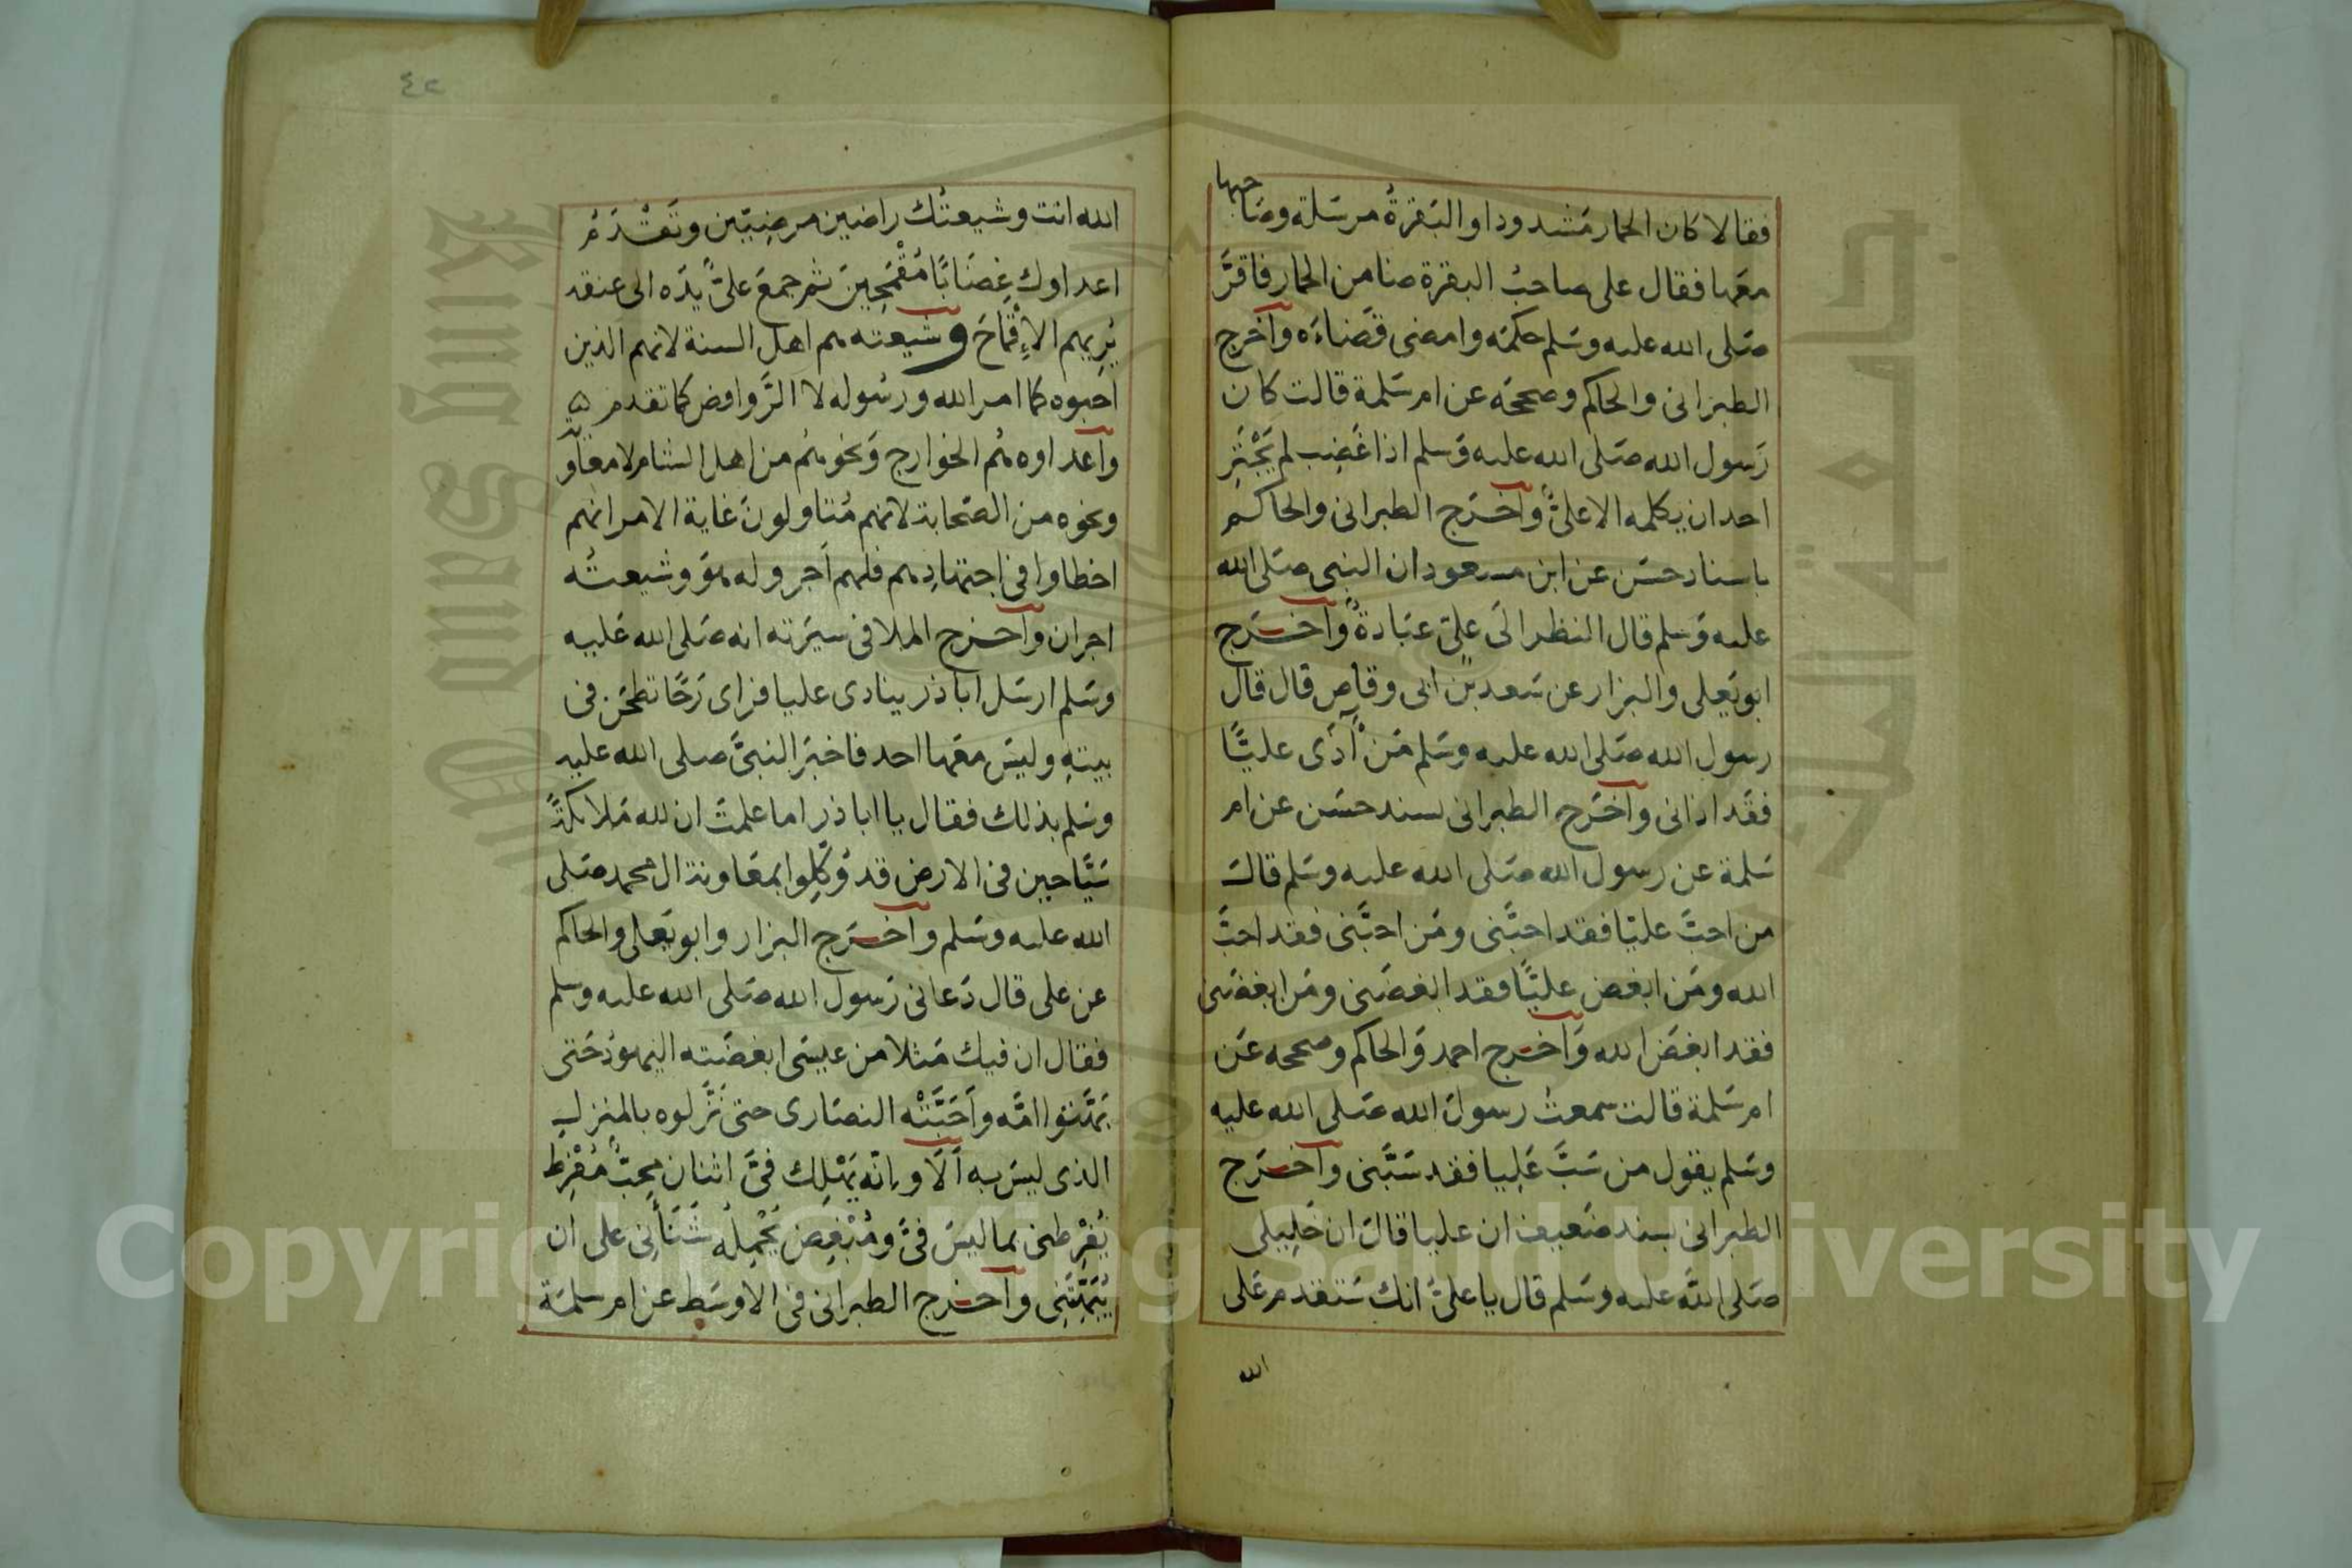 فقالا كان الحمار مشدودا والبقرةُ مرسَلة وصَاحبها
معَها فقال على صاحبُ البقرة ضامن الحمار فاقرَّ
صَلى الله عليه وسَلم حكمَه وامضى قضَاءَه وآخرج
الطبرانى والحاكم وصححَه عن ام سَلمة قالت كان
رَسول الله صَلى الله عليه وَسلم اذا غَضِب لم يَجْتَرِ
احد ان يكلمه الا علىٌّ وآخرَج الطبرانى والحاكم
باسناد حسَن عن ابن مسعود ان النبى صَلى الله
عليه وَسلم قال النظر الَى علىّ عبَادةٌ وآخرَج
ابو يَعلى والبزار عن سَعد بن ابى وقاص قال قال
رسول الله صَلى الله عليه وسَلم مَنْ آذَى عليًّا
فقَد اذانى وآخرَج الطبرانى بسند حسَن عن ام
سَلمة عن رسول الله صَلى الله عليه وسَلم قال
من احبَّ عليّا فقد احبَّنى ومَن احبَّنى فقد احبَّ
الله ومَن ابغض عليًّا فقد ابغضَنى ومَن ابغضَنى
فقد ابغَض الله وَآخرج احمد وَالحاكم وصححه عَن
ام سَلمة قالت سمعتُ رسولَ الله صَلى الله عليه
وسَلم يقول من سَبَّ عَليا فقد سَبَّنى وآخرَج
الطبرانى بسند ضَعيف ان عليا قالَ ان خَلِيلى
صَلى اللَّه عليه وسَلم قال يا علىُّ انك سَتقدم عَلى
الله
٤٢
الله انت وشيعتُك راضين مرضِيّين وتَقْدَمُ
اعداوك غِضَابًا مُقْمَحِينَ ثم جمعَ علىٌّ يدَه الى عنقه
يُرِيهم الإِقْمَاحَ وشيعته هم اهل السنة لانهم الذين
احَبوه كما امر الله ورسُوله لا الرَّوافض كما تقدم
وآعداوه هُم الخوارج وَنحوهُم من اهل الشام لا معَاوية
ونحوه من الصَّحابة لانهم مُتاولونَ غاية الامر انهم
اخطاوا فى اجتهادِهم فلهم اَجر وله هوَ وشيعتُه
اجران وآخرج الملا فى سيَرته انه صَلى الله عَليه
وسَلم ارسَل ابا ذر ينادى عليا فراى رَحًا تطحَن فى
بيتهِ وليسَ معَها احد فاخبرَ النبىَّ صلى الله عليه
وسَلم بذلك فقال يا ابا ذر اما علمتَ ان لله مَلائكةً
سَيّاحين فى الارض قد وُكّلوا بمعَاونة ال محمد صَلى
الله عليه وسَلم وآخرَج البزار وابو يَعلى والحاكم
عن على قال دَعانى رَسول الله صَلى الله عليه وسلم
فقال ان فيك مَثلا من عيسَى ابغضَته اليهودُ حَتى
بَهَتوا امَّه وأحَبَّتْه النصَارى حتى نَزَّلوه بالمنزل
الذى ليسَ به اَلَا وانّه يَهْلِك فىَّ اثنان مِحبٌّ مُفْرِط
يُفْرِطنى بما ليسَ فىَّ ومُبْغِض يَحْمِلُه شَنَأنِى على ان
يَبْهَتَنِى وآخرج الطبرانى فى الاوسَط عن ام سلمَة